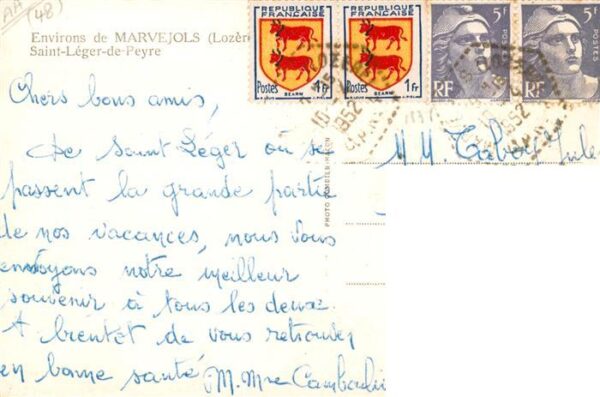 AA (48)
Environs de MARVEJOLS (Lozèr
Saint-Léger-de-Peyre
REPUBLIQUE FRANÇAISE
Postes 1Fr
BEARN
REPUBLIQUE FRANÇAISE
Postes 1Fr
BEARN
5F
POSTES
RF
5F
POSTES
RF
1952
1952
Chers bons amis,
De Saint Léger où se
passent la grande partie
de nos vacances, nous vous
envoyons notre meilleur
souvenir à tous les deux.
A bientôt de vous retrouver
en bonne santé
M. Mme
M M.